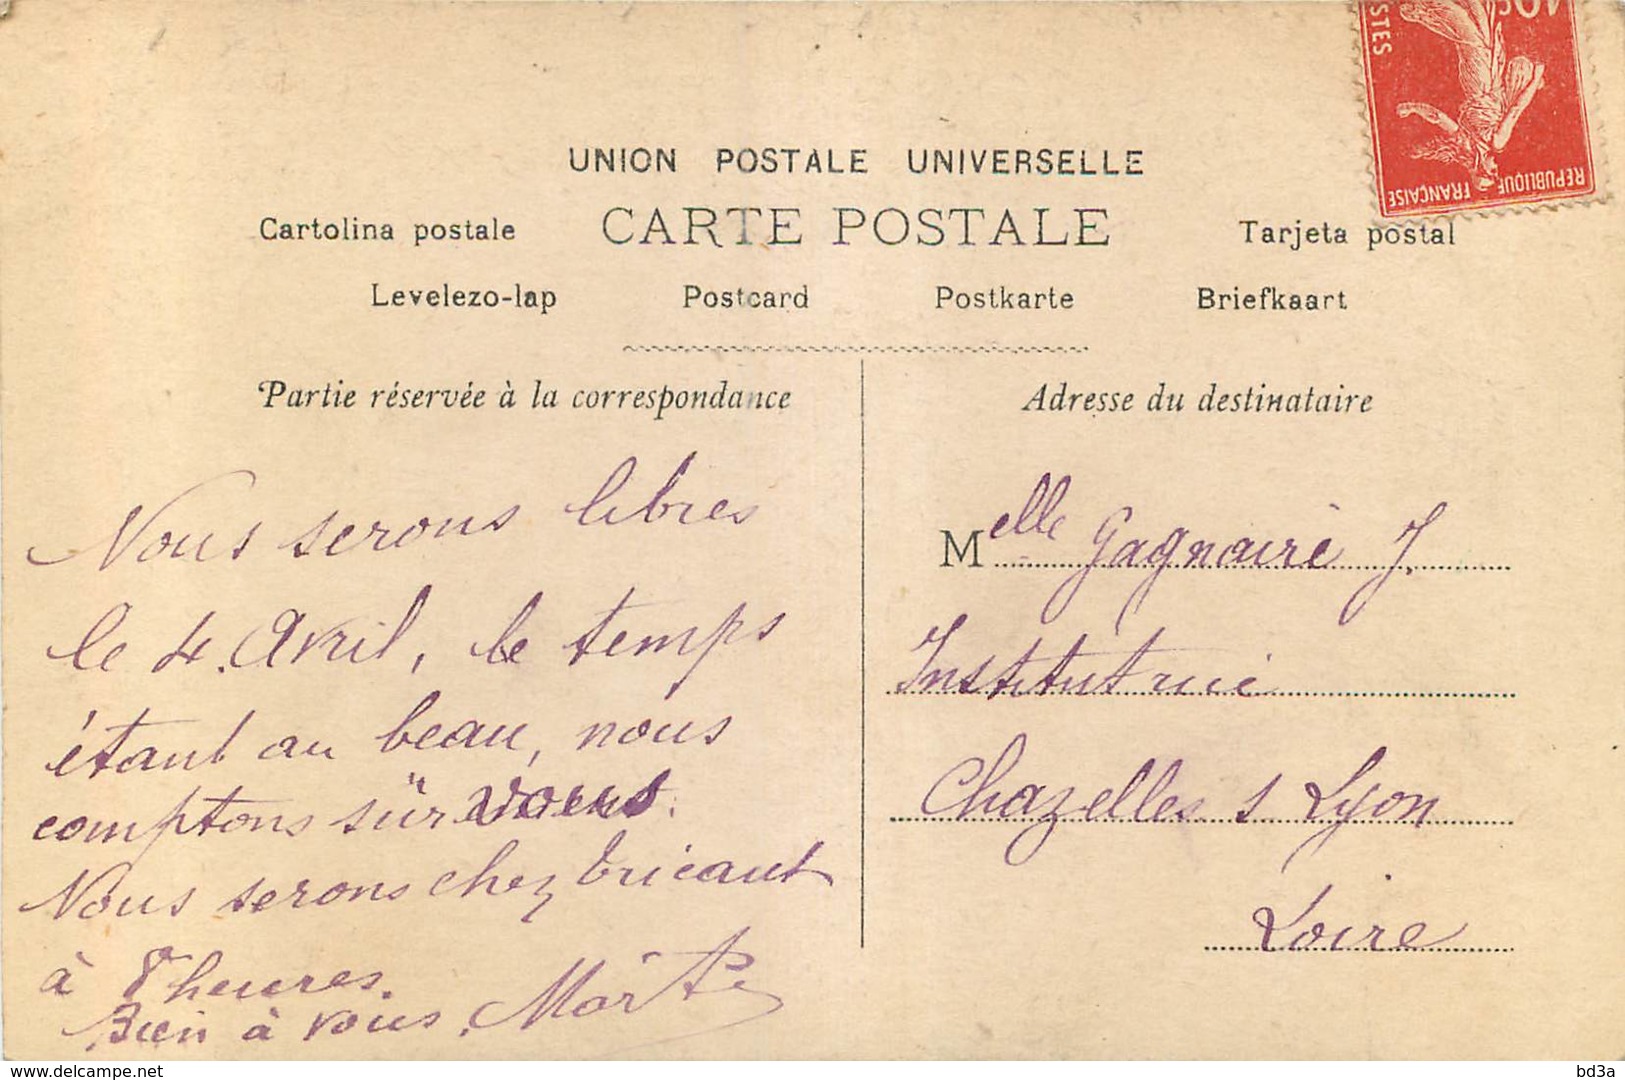 10c
POSTES
REPUBLIQUE FRANÇAISE
UNION POSTALE UNIVERSELLE
Cartolina postale CARTE POSTALE Tarjeta postal
Levelezo-lap Postcard Postkarte Briefkaart
Partie réservée à la correspondance
Nous serons libres
le 4 Avril, le temps
étant au beau, nous
comptons sur vous.
Nous serons chez Bricaut
à 8 heures.
Bien à vous.
Adresse du destinataire
Melle Gagnaire J.
Institutrice
Chazelles s Lyon
Loire
Delcampe.net
bd3a